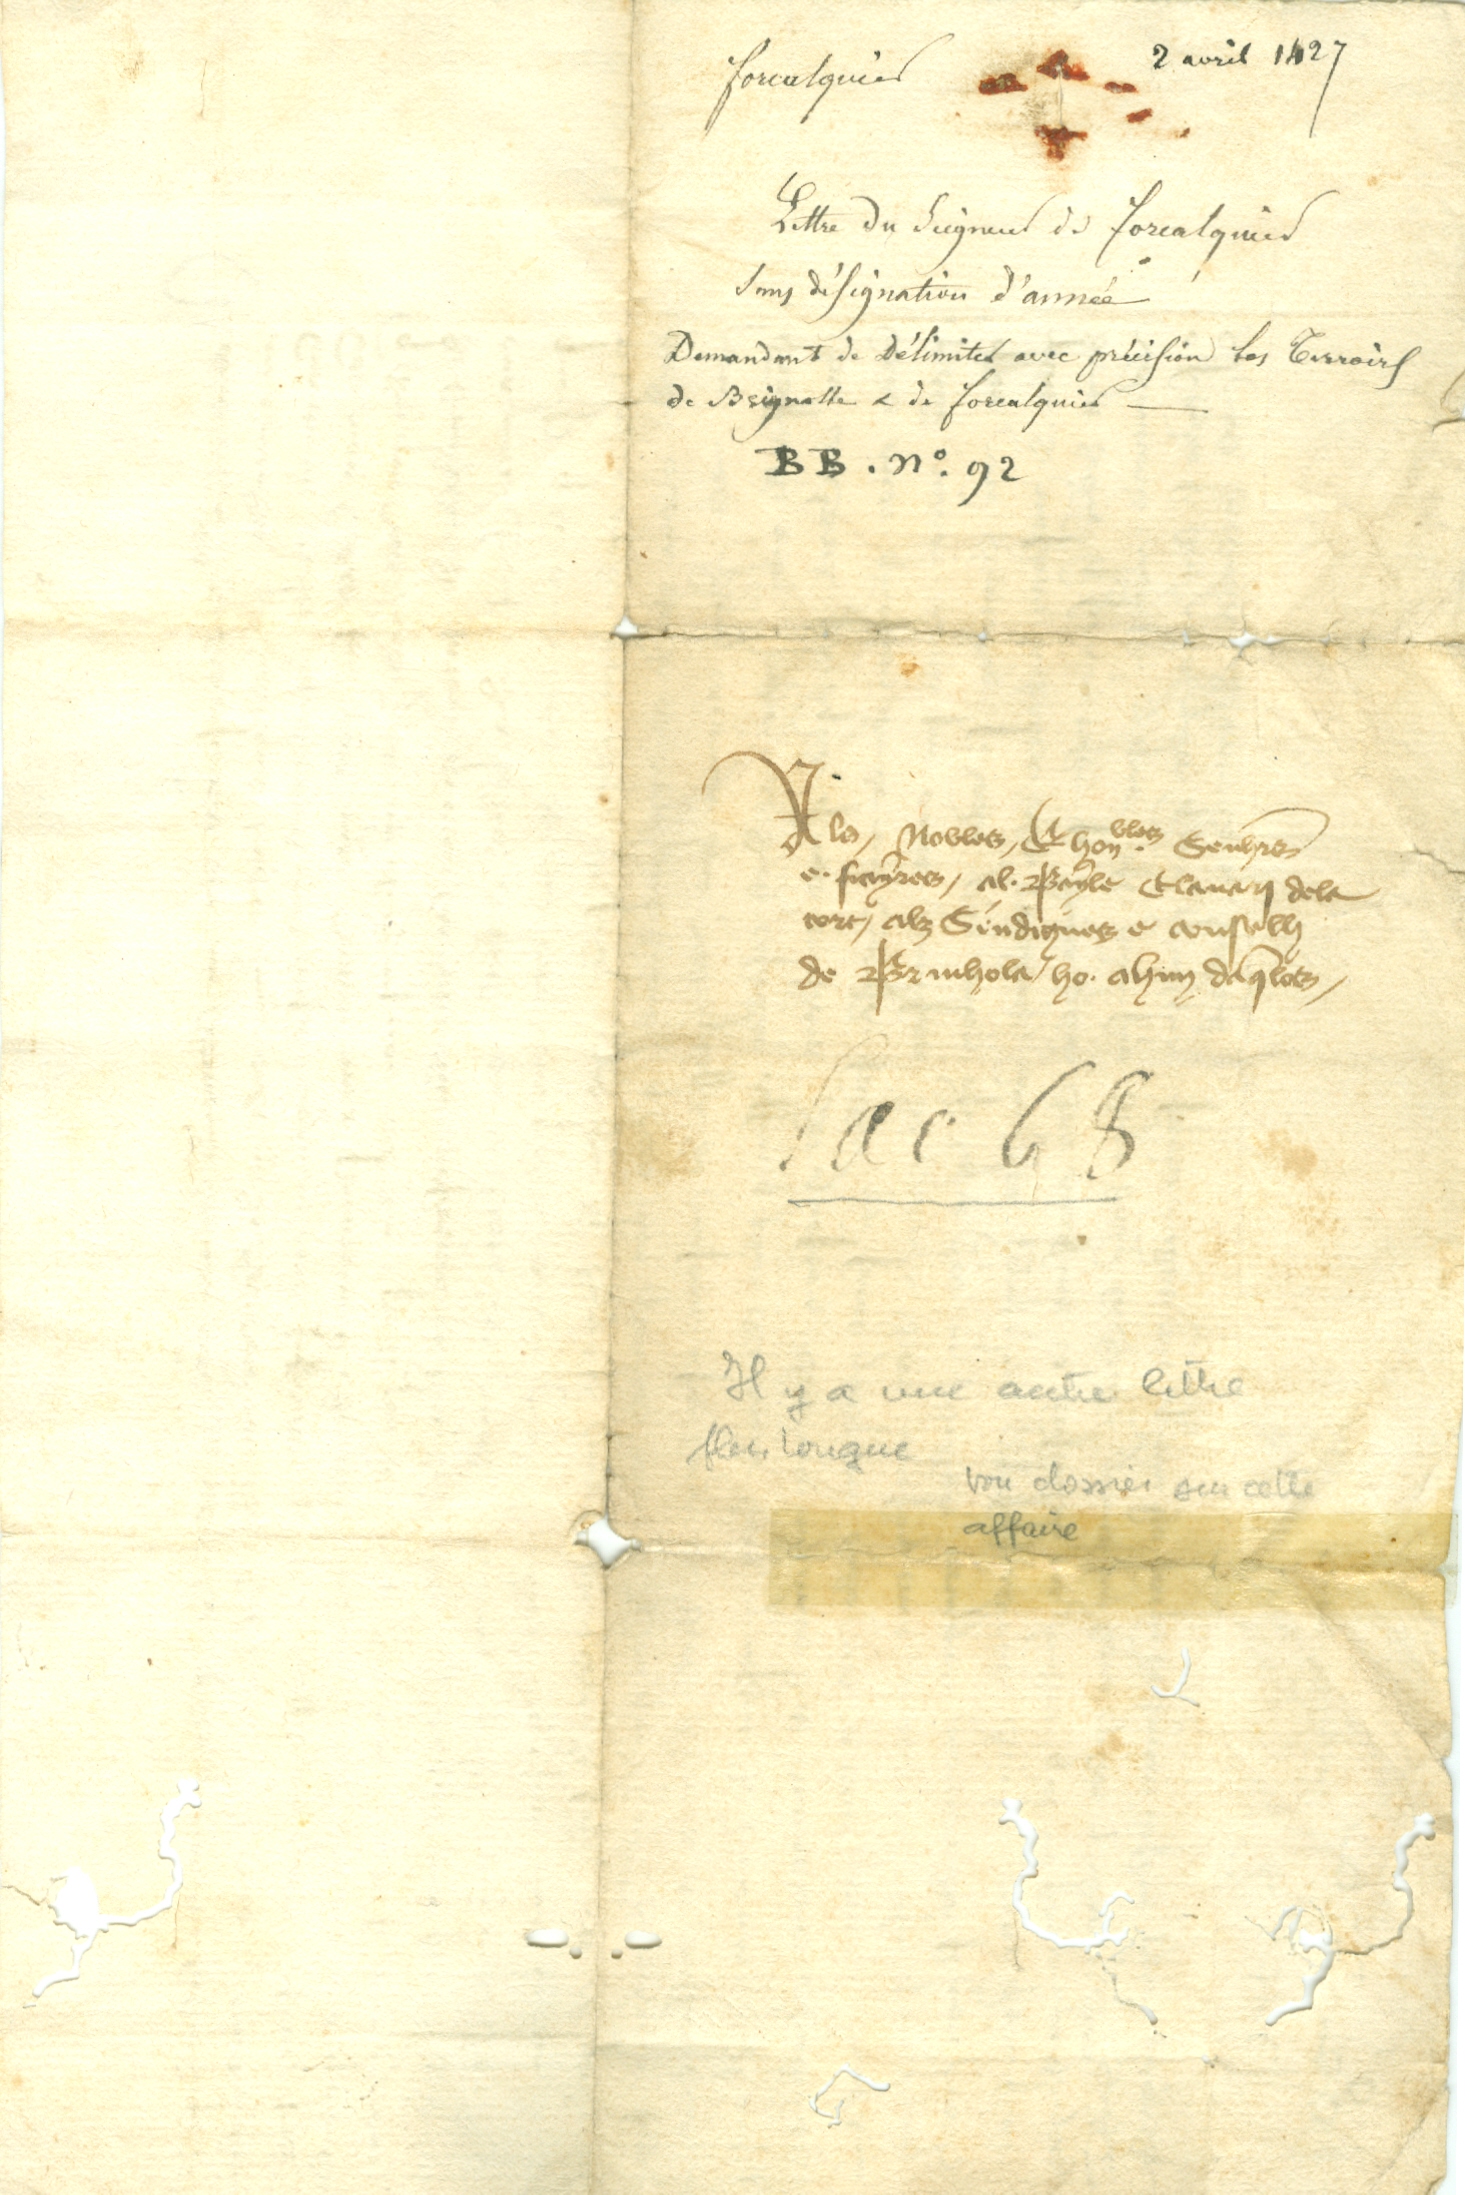 forcalquier
2 avril 1427
Lettre du Seigneur de forcalquier
sans désignation d'année
Demandant de Délimiter avec précision les Terroirs
de Brignolle & de forcalquier
BB. N°. 92
Als, Nobles, E hon bles Senhors
e. frayres, al. Bayle Clavari dela
cort, als Sindigues e conselh
de Brinhola, ho. alhun daqlos,
Sac 68
Il y a une autre lettre
plus longue
voir dossier sur cette
affaire